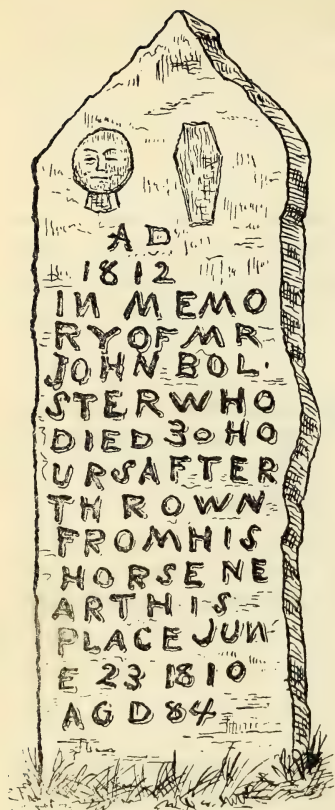 AD
1812
IN MEMO
RY OF MR
JOHN BOL.
STER WHO
DIED 30 HO
URS AFTER
THROWN
FROM HIS
HORSE NE
AR THIS
PLACE JUN
E 23 1810
AGD 84